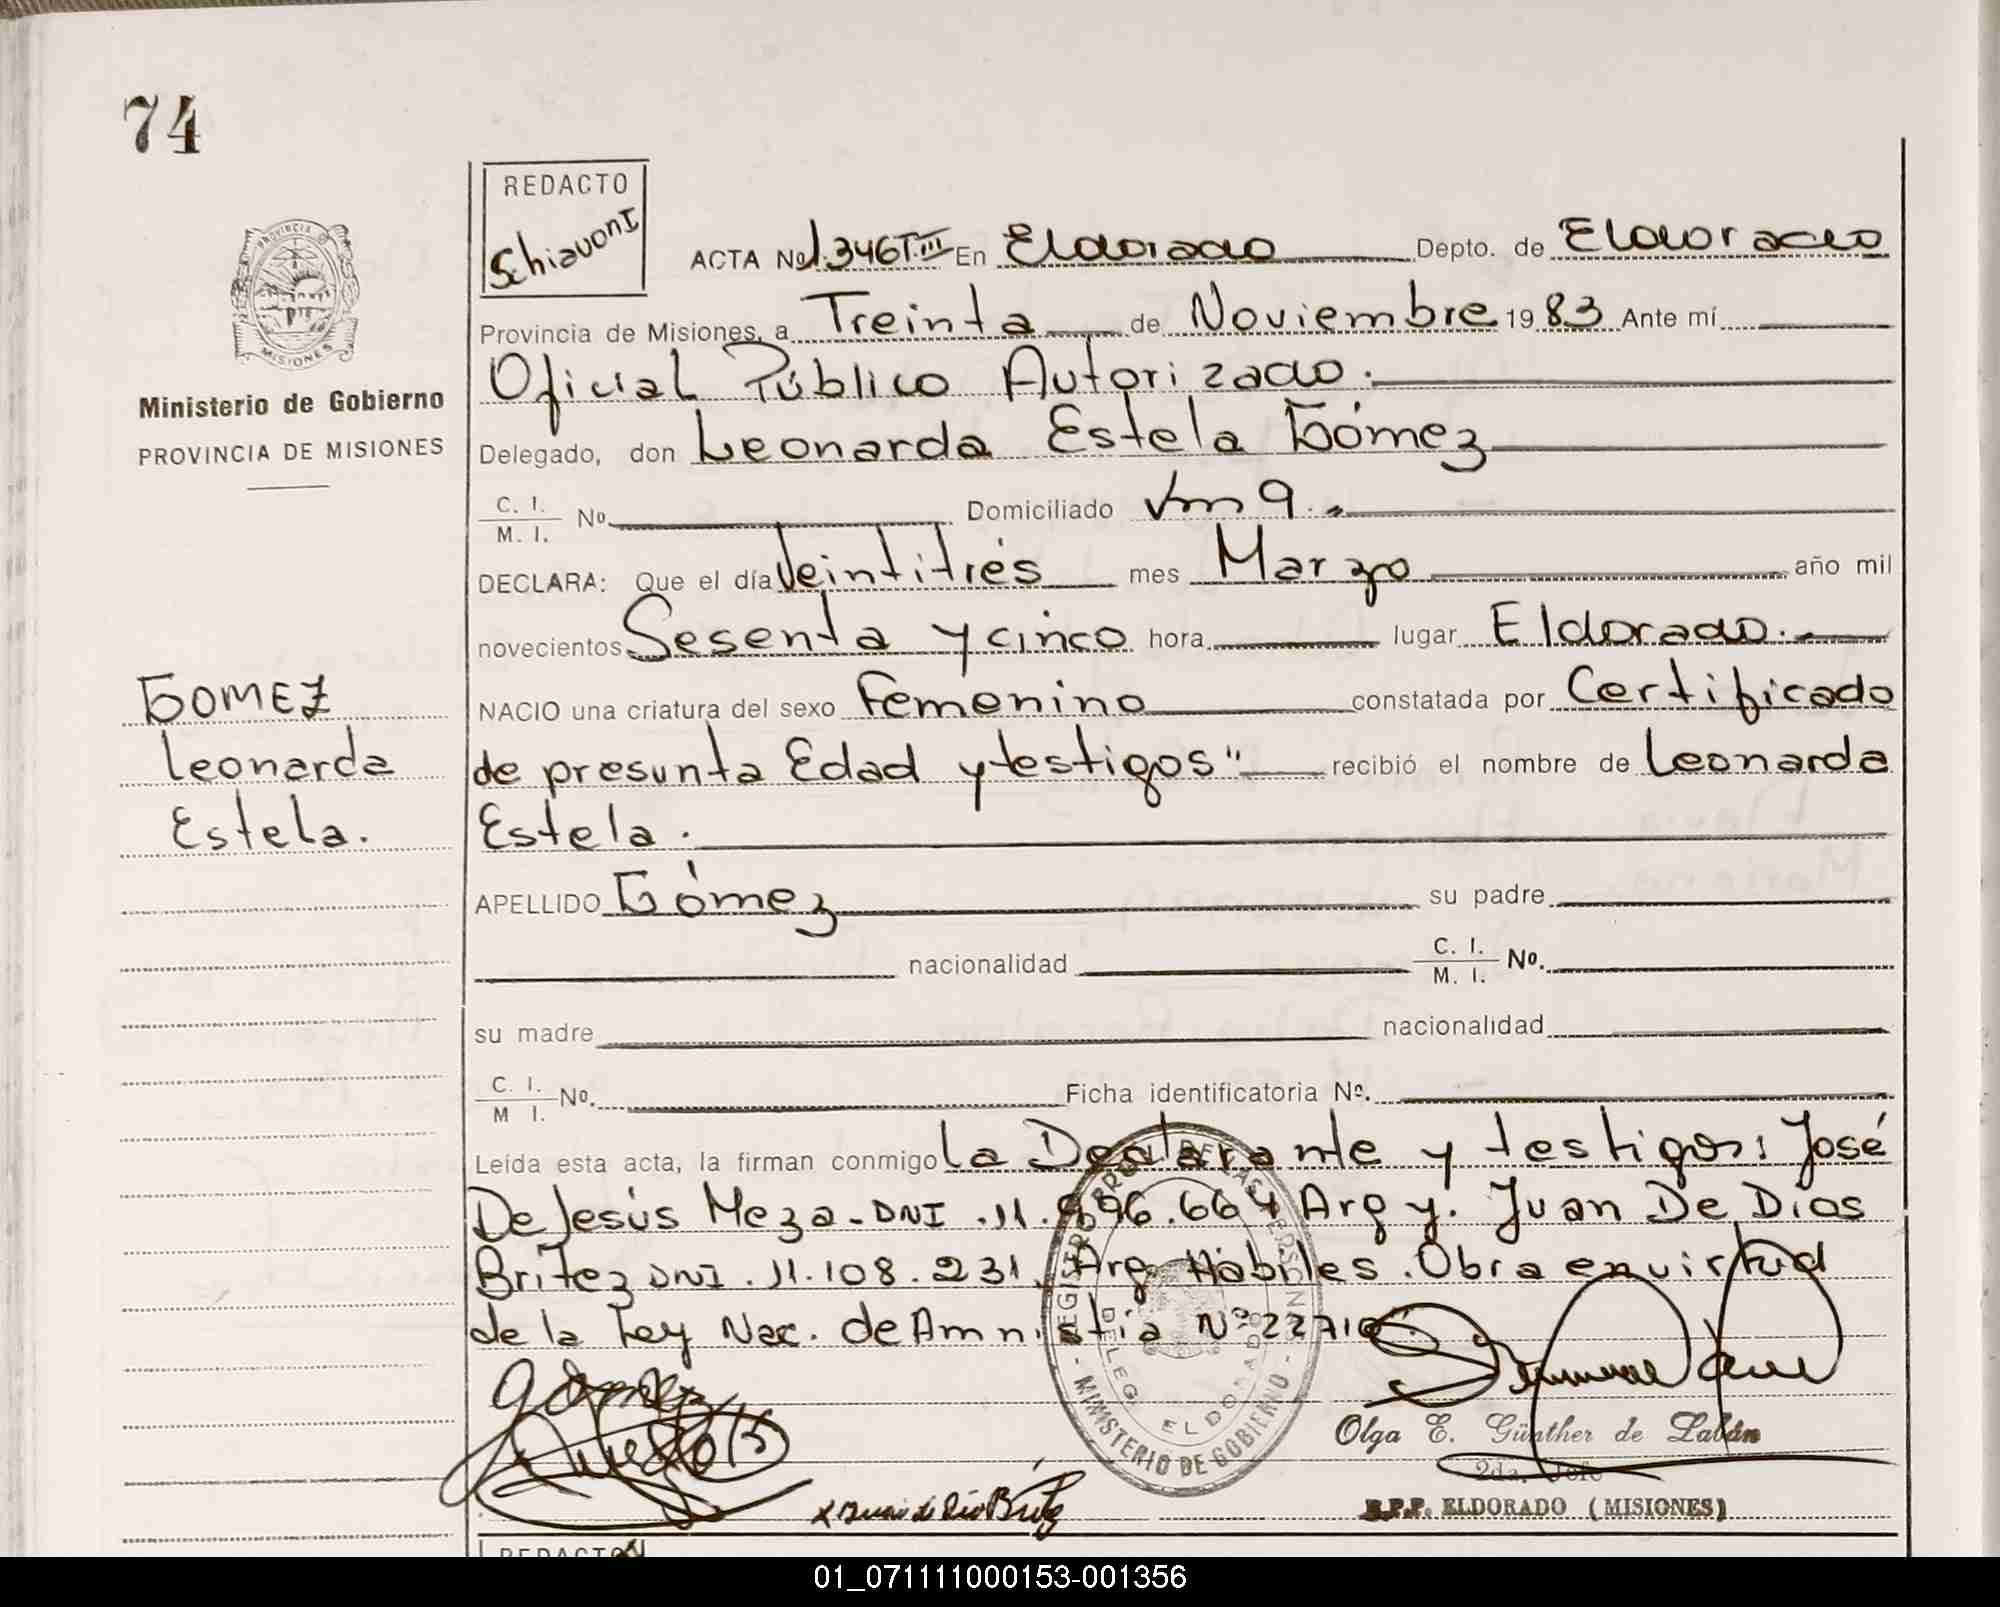 74
REDACTO
Schiavoni
ACTA Nº 1.346 T.III En Eldorado Depto. de Eldorado
Provincia de Misiones, a Treinta de Noviembre 1983 Ante mí
Oficial Público Autorizado.
Delegado, don Leonarda Estela Gómez
C. I.
M. I. Nº Domiciliado km 9.
DECLARA: Que el día Veintitrés mes Marzo año mil
novecientos Sesenta y cinco hora lugar Eldorado.
NACIO una criatura del sexo Femenino constatada por Certificado
de presunta Edad y testigos" recibió el nombre de Leonarda
Estela.
APELLIDO Gómez su padre
nacionalidad C. I.
M. I. Nº.
su madre nacionalidad
C. I.
M I. Nº. Ficha identificatoria Nº.
Leída esta acta, la firman conmigo la Declarante y testigos: José
De Jesús Meza - DNI .11. 664 Arg y. Juan De Dios
Britez DNI . 11.108.231, Arg Hábiles. Obra en virtud
de la Ley Nac. de Amnistía Nº
PROVINCIA
MISIONES
Ministerio de Gobierno
PROVINCIA DE MISIONES
GOMEZ
Leonarda
Estela.
Gómez
REGISTRO PROV. DE LAS PERSONAS
DELEG. ELDORADO
- MINISTERIO DE GOBIERNO -
Olga E. Günther de Labán
2da. Jefe
R.P.P. ELDORADO (MISIONES)
REDACTO
01_071111000153-001356